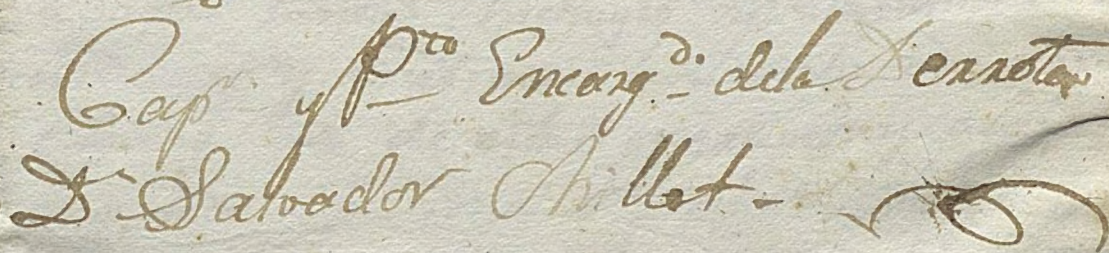 Cap.n y P.to Encarg.do dela Derrota
D.n Salvador Millet